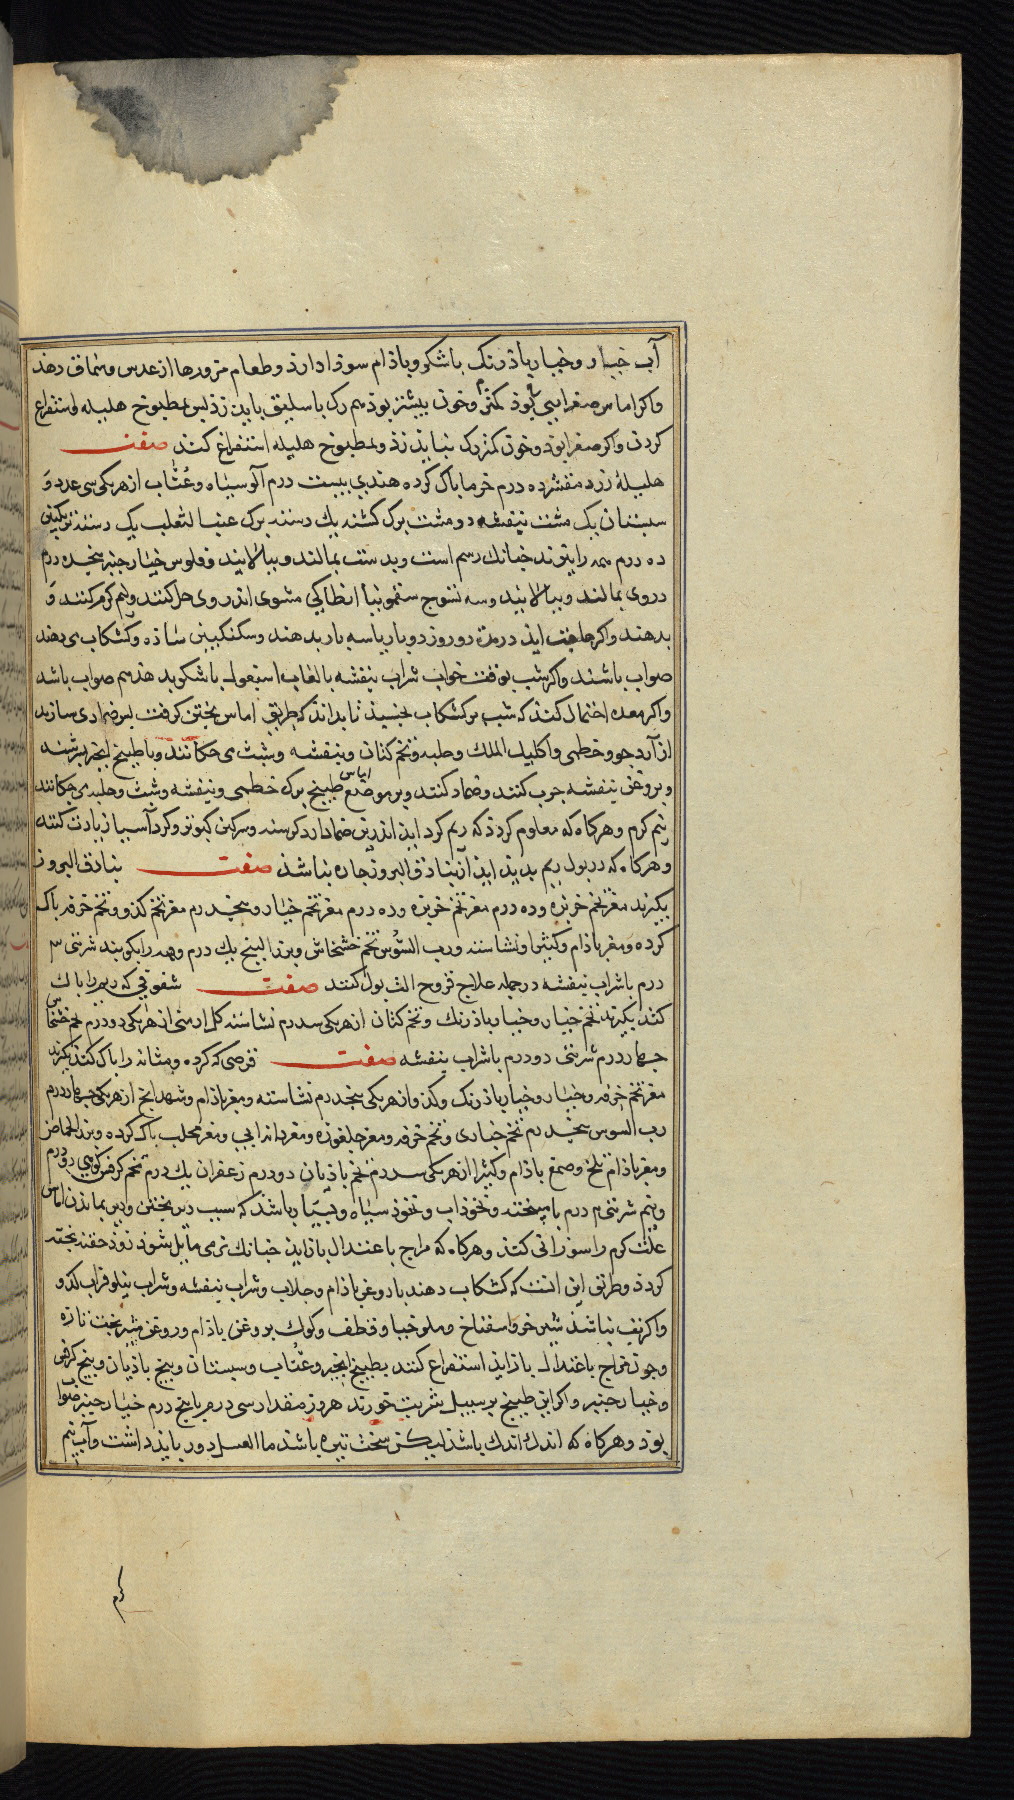 آب خیار و خیار باذرنک با شکر و باذام سوذ دارذ و طعام مزورها از عدس و سماق دهند
و اکر اماس صفرایی بوذ کمتر و خون بیشتر بوذ هم رک باسلیق بایذ زذ پس بمطبوخ هلیله استفراغ
کردن و اکر صفرا بوذ و خون کمتر رک نبایذ زذ و بمطبوخ هلیله استفراغ کنند صفت
هلیلهٔ زرد مقشر ده درم خرما پاک کرده هندی بیست درم آلو سیاه و عُنّاب از هر یکی سی عدد و
سبستان یک مشت بنفشه دو مشت برک کشنه یک دسته برک عنب الثعلب یک دسته ترنکبین
ده درم همه را بپزند چنانک رسم است و بدست بمالند و بپالایند و فلوس خیار چنبر پنجده درم
در وی بمالند و بپالایند و سه تسّوج سقمونیا انطاکی مشوی اندر وی حل کنند و نیم کرم کنند و
بدهند و اکر حاجت ایذ در مدة دو روز دو بار یا سه بار بدهند و سکنکبین ساذه و کشکاب می دهند
صواب باشد و اکر شب بوقت خواب شراب بنفشه بالعاب اسبغول با شکر بدهند هم صواب باشد
و اکر معده احتمال کند که شب بر کشکاب بخسپذ تا بدانذ که طریق اماس پختن کرفت پس ضمادی سازند
از آرد جو و خطمی و اکلیل الملک و حلبه و تخم کتان و بنفشه و شبت می چکانند و با طبیخ انجیر بسرشند
و بروغن بنفشه چرب کنند و ضماد کنند و بر موضع اماس طبیخ برک خطمی و بنفشه و شبت و حلبه می چکانند
نیم کرم و هرکاه که معلوم کردذ که ریم کرد ایذ اندرین ضماد ارد کرسنه و سرکین کبوتر و کرد آسیا زیادت کنند
و هرکاه که در بول ریم بدیذ ایذ از بنادق البزور چاره نباشذ صفت بنادق البزور
بکیرند مغز تخم خربزه و ده درم مغز تخم خربزه وده درم مغز تخم خیار و پنجدرم مغز تخم کذو و تخم خرفه پاک
کرده و مغز باذام و کثیرا و نشاسته و رب السّوس تخم خشخاش و بزر البنج یک درم و همه را بکوبند شربتی س
درم با شراب بنفشه در جمله علاج قروح الث بول کنند صفت سفوفی که ریم را پاک
کند بکیرند تخم خیار و خیار باذرنک و تخم کتان از هر یکی سه درم نشاسته کل ارمنی از هر یکی دو درم تخم خشخاش
چهار درم شربتی دو درم با شراب بنفشه صفت قرصی که کرده و مثانه را پاک کند بکیرند
مغز تخم خرفه و خیار و خیار باذرنک و کذو از هر یکی پنجدرم نشاسته و مغز باذام و شهدانج از هر یکی چهار درم
رب السوس پنجدرم تخم خبازی و تخم خرفه و مغز جلغوزه و مغز دانه ابی و مغز محلب پاک کرده و بزر الحماض
و مغز باذام تلخ و صمغ باذام و کثیرا از هر یکی سدرم تخم باذیان دو درم زعفران یک درم تخم کرفس کوهی دو درم
و نیم شربتی درم با میبخته و نخوذاب و نخوذ سیاه و بسیار باشذ که سبب دیر پختن و دیر بماندن اماس
علت کرم را سوزانی کند و هرکاه که مزاج باعتدال باز ایذ چنانک نرمی مایل شوذ زوذ حقنه پخته
کردذ و طریق این است که کشکاب دهند باروغن باذام و جلاب و شراب بنفشه و شراب نیلوفر اب کذو
و اکر تب نباشذ شیر خر و اسفناخ و ملوخیا و قطف و کوک بروغن باذام و روغن شیر پخت تازه
و چون مزاج باعتدال باز ایذ استفراغ کنند بطبیخ انجیر و عُنّاب و سبستان و بیخ باذیان و بیخ کرفس
و خیار چنبر و اکر این طبیخ بر سبیل شربت خورند هر روز مقدار سی درم با پنج درم خیار چنبر صواب
بوذ و هرکاه که اندک اندک باشذ لیکن سخت تیره باشذ ما العسل دور بایذ داشت و آب نیم
کرم